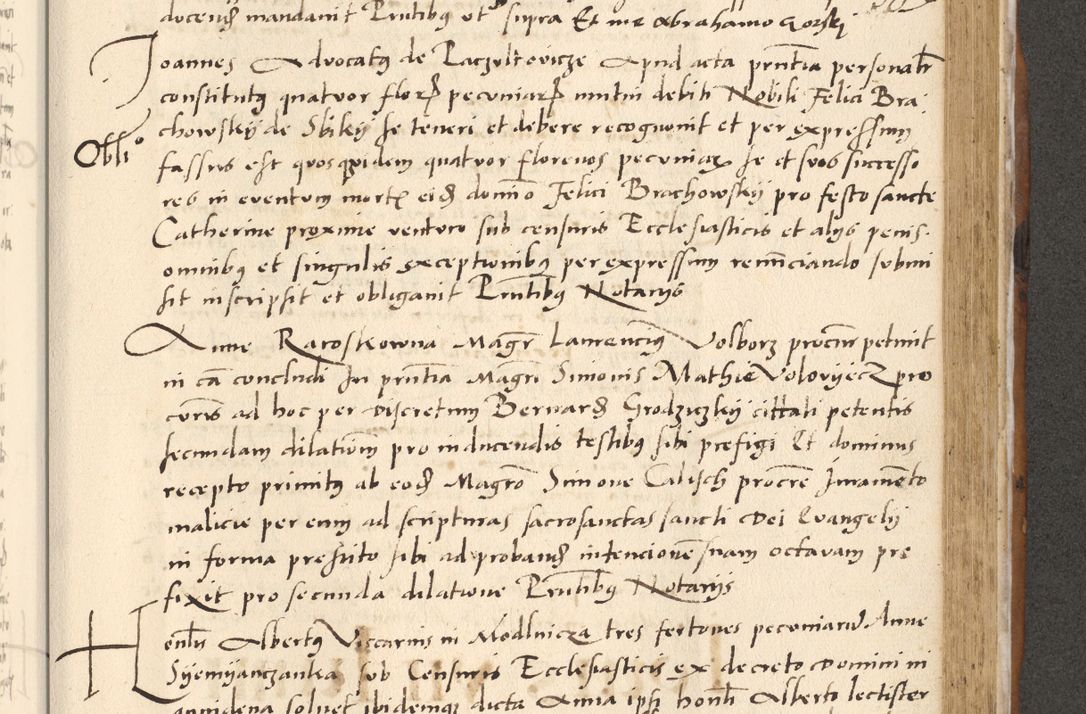 docend mandavit Prntibus ut supra Et me Abrahamo Gorski
Joannes Advocatus de Raczultovicze Apud acta prntia personalr
constitutus quatvor flor pecuniar mutui debiti Nobili Felici Bra
chowskij de Sbikij se teneri et debere recognouit et per expressum
Obblio
fassus est quos quidem quatvor florenos pecuniar se et suos successo
res in eventum mort eid domino Felici Brachowskij pro festo sancte
Catherine proxime venturo sub censuris Ecclesiasticis et alijs penis
omnibus et singulis exceptionibus per expressum renunciando submi
sit inscripsit et obligauit Prntibus Notarijs
Anne Rarostkowna Magr Laurencius Volborz procur petiuit
in ca concludi In prntia Magri Simonis Mathie Volovijecz pro
curis ad hoc per discretum Bernard Grodziczkij cittati petentis
secundam dilationem pro inducendis testibus sibi prefigi Et dominus
recepto primitus ab eod Magro Simone Calisch procre Juramento
malicie per eum ad scripturas sacrosanctas sancti Dei Evangelij
in forma prestito sibi ad proband intencionem suam octavam pre
fixit pro secunda dilatione Prntibus Notarijs
Honblis Albertus Viccarius in Modlnicza tres fertones pecuniarum Anne
Sijemijanczanka sub Censuris Ecclesiasticis ex decreto Domini in
quindena solvet ibidemque dicta Anna ipsi honbli Alberto lectister